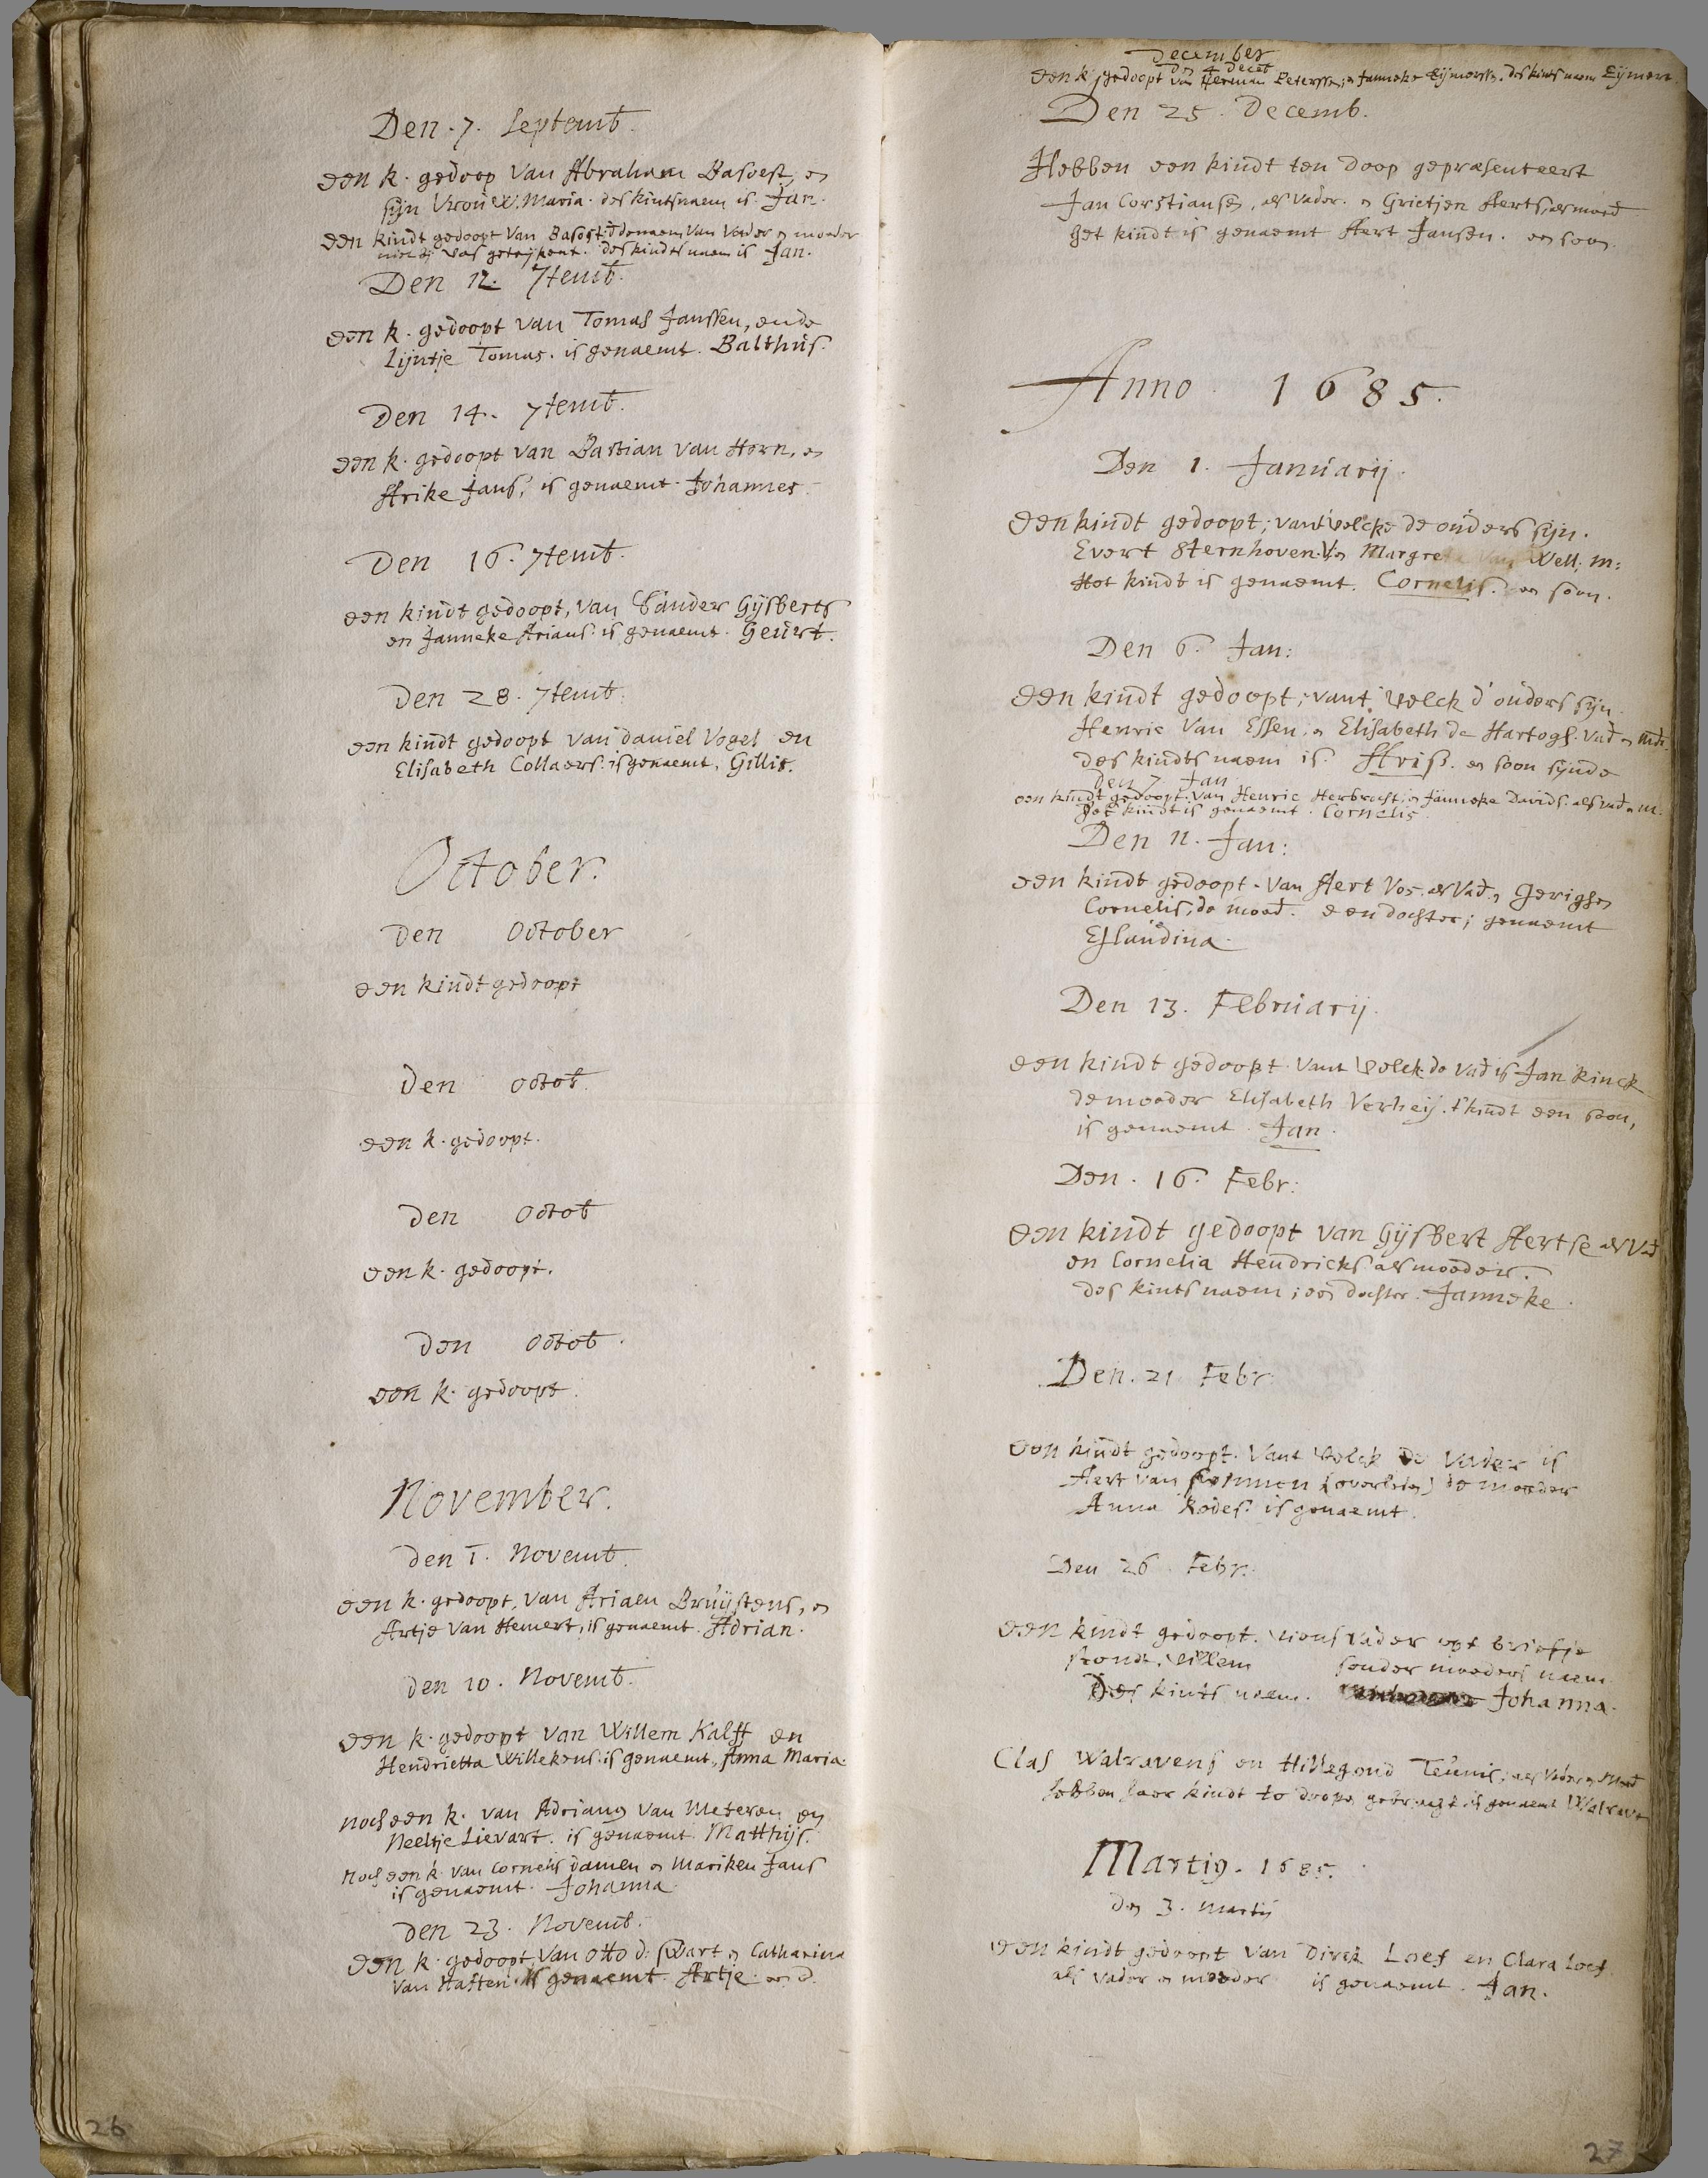 Den. 7. Septemb.
een k. gedoop Van Abraham Basoest, en
sijn Vrouw. Maria. des kintsnaem is. Jan.
een kindt gedoopt Van denaem Van Vader en moeder
niet was des kindts naem is Jan.
Den 12. 7temb.
een k. gedoopt van Tomas Janssen, ende
Lijntje Tomas. is genaemt. Balthus.
Den 14. 7temb.
een k. gedoopt van Bastian van Horn, en
Arike Jans, is genaemt. Johannes.
Den 16. 7temb.
een kindt gedoopt, van Sander Gijsberts
en Janneke Arians. is genaemt. Geurt.
Den 28. 7temb.
een kindt gedoopt van daniel Vogel en
Elisabeth Collaers. is genaemt. Gillis.
October.
Den October
een kindt gedoopt
den octob.
een k. gedoopt.
den octob
een k. gedoopt.
den octob.
een k. gedoopt.
November.
den 1. Novemb.
een k. gedoopt, van Ariaen Bruijstens, en
Artje van Hemert, is genaemt. Adrian.
den 10. Novemb.
een k. gedoopt van Willem Kalff en
Hendrietta Willekens. is genaemt. Anna Maria.
noch een k. van Adriang van Meteren en
Neeltje Lievart. is genaemt. Matthijs.
noch een k. van Cornelis Damen en Mariken Jans
is genaemt. Johanna.
den 23. Novemb.
een k. gedoopt, van otto d: Swart en Catharina
van Haften. is genaemt. Artje. een d.
26
December
den 4 Deceb
een k. gedoopt van Herman Peterssen, en Janneke Eijmerss. des kints naem Eijmert.
Den 25. Decemb.
Hebben een kindt ten doop gepræsenteert
Jan Corstiansen, als vader. en Grietjen Aerts, als moed.
Het kindt is genaemt Aert Jansen. een soon.
Anno 1685.
Den 1. Januarij.
Een kindt gedoopt; vant welcke de ouders sijn.
Evert Sternhoven. V. en Margreta van Well. m:
Het kindt is genaemt. Cornelis. een soon.
Den 6. Jan:
Een kindt gedoopt; vant welck d'ouders sijn
Henric Van Essen, en Elisabeth de Hartogh. vad en
des kindts naem is. Aris. en soon sijnde
Den 7. Jan
een kindt gedoopt. van Henric Herbracht, en Janneke Davids. als vad en m.
Het kindt is genaemt. Cornelis.
Den 11. Jan:
een kindt gedoopt. van Aert Vos. als Vad. en
Cornelis, de moed. een dochter; genaemt
Eslandina.
Den 13. Februarij.
een kindt gedoopt. Vant welck de vad is Jan Kinck
de moeder Elisabeth Verheij. t'kindt een soon,
is genaemt. Jan.
Den. 16. Febr:
Een kindt gedoopt van Gijsbert Aertse als Vad
en Cornelia Hendricks als moeder.
des kints naem; een dochter. Janneke.
Den. 21 Febr
Een kindt gedoopt. Vant welck de Vader is
Aert van (overleden) de moeder
Anna Rodes. is genaemt.
Den 26 Febr.
een kindt gedoopt. wiens vader opt briefje
stondt. Willem sonder moeders naem
Des kints naem. Johanna.
Clas Walravens en Hillegond Teunis, als Vader en Moed
hebben haer kindt te doopen gebraght is genaemt Walrave
Martig. 1685.
den 3. Martij
een kindt gedoopt van Dirck Loef en Clara Loef
als vader en moeder is genaemt. Jan.
27